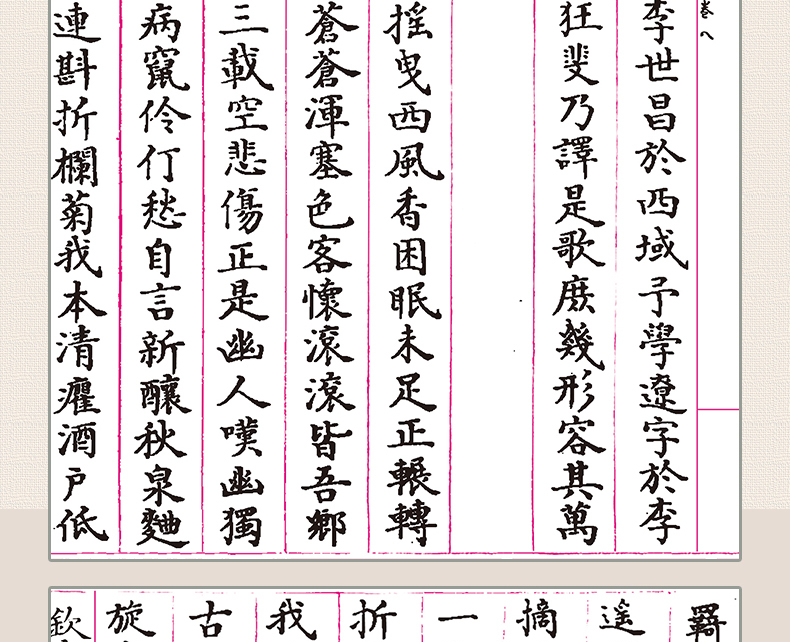 卷八
李世昌於西域予學遼字於李
狂斐乃譯是歌庶幾形容其萬
搖曳西風香困眠未足正輾轉
蒼蒼渾塞色客懷滾滾皆吾鄉
三載空悲傷正是幽人嘆幽獨
病竄伶仃愁自言新釀秋泉麯
連斟折欄菊我本清癯酒戶低
羇
遙
摘
一
折
我
古
旋
欽